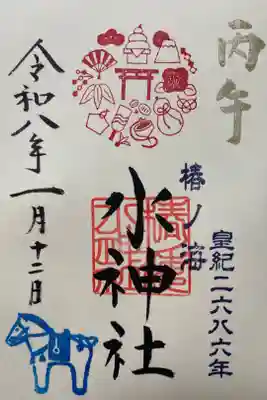 丙午
皇紀二六八六年
椿ノ海
水神社
令和八年一月十二日